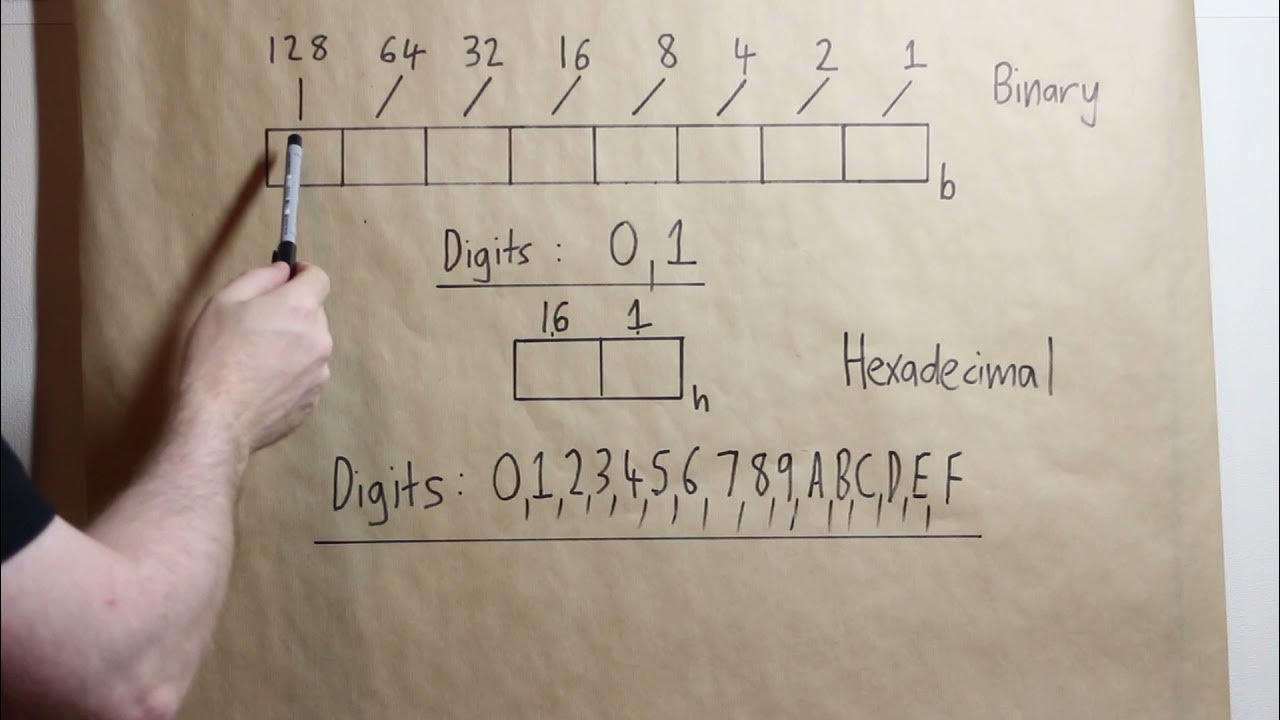 128 64 32 16 8 4 2 1
Binary
b
Digits : 0,1
16 1
h
Hexadecimal
Digits: 0,1,2,3,4,5,6,7,8,9,A,B,C,D,E,F